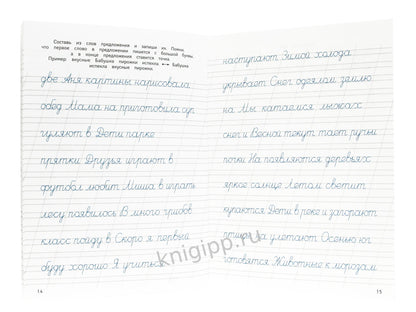 Составь из слов предложения и запиши их. Помни,
что первое слово в предложении пишется с большой буквы,
а в конце предложения ставится точка.
Пример: вкусные Бабушка пирожки испекла — Бабушка
испекла вкусные пирожки.
две Аня картины нарисовала
обед Мама на приготовила суп
гуляют в Дети парке
прятки Друзья играют в
футбол любит Миша в играть
лесу появилось В много грибов
класс пойду в Скоро я первый
буду хорошо Я учиться
14
наступают Зимой холода
укрывает Снег одеялом землю
на Мы катаемся лыжах
снег и Весной текут тает ручьи
почки На появляются деревьях
яркое солнце Летом светит
купаются Дети в реке и загорают
птицы на улетают Осенью юг
готовятся Животные к морозам
15
knigipp.ru